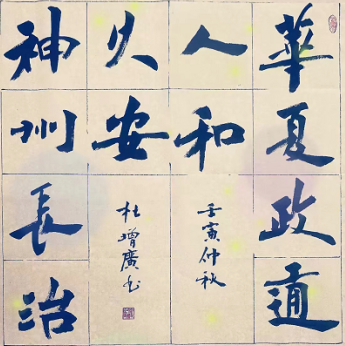 華夏政通
人和
神州長治
久安
壬寅仲秋
杜增廣书